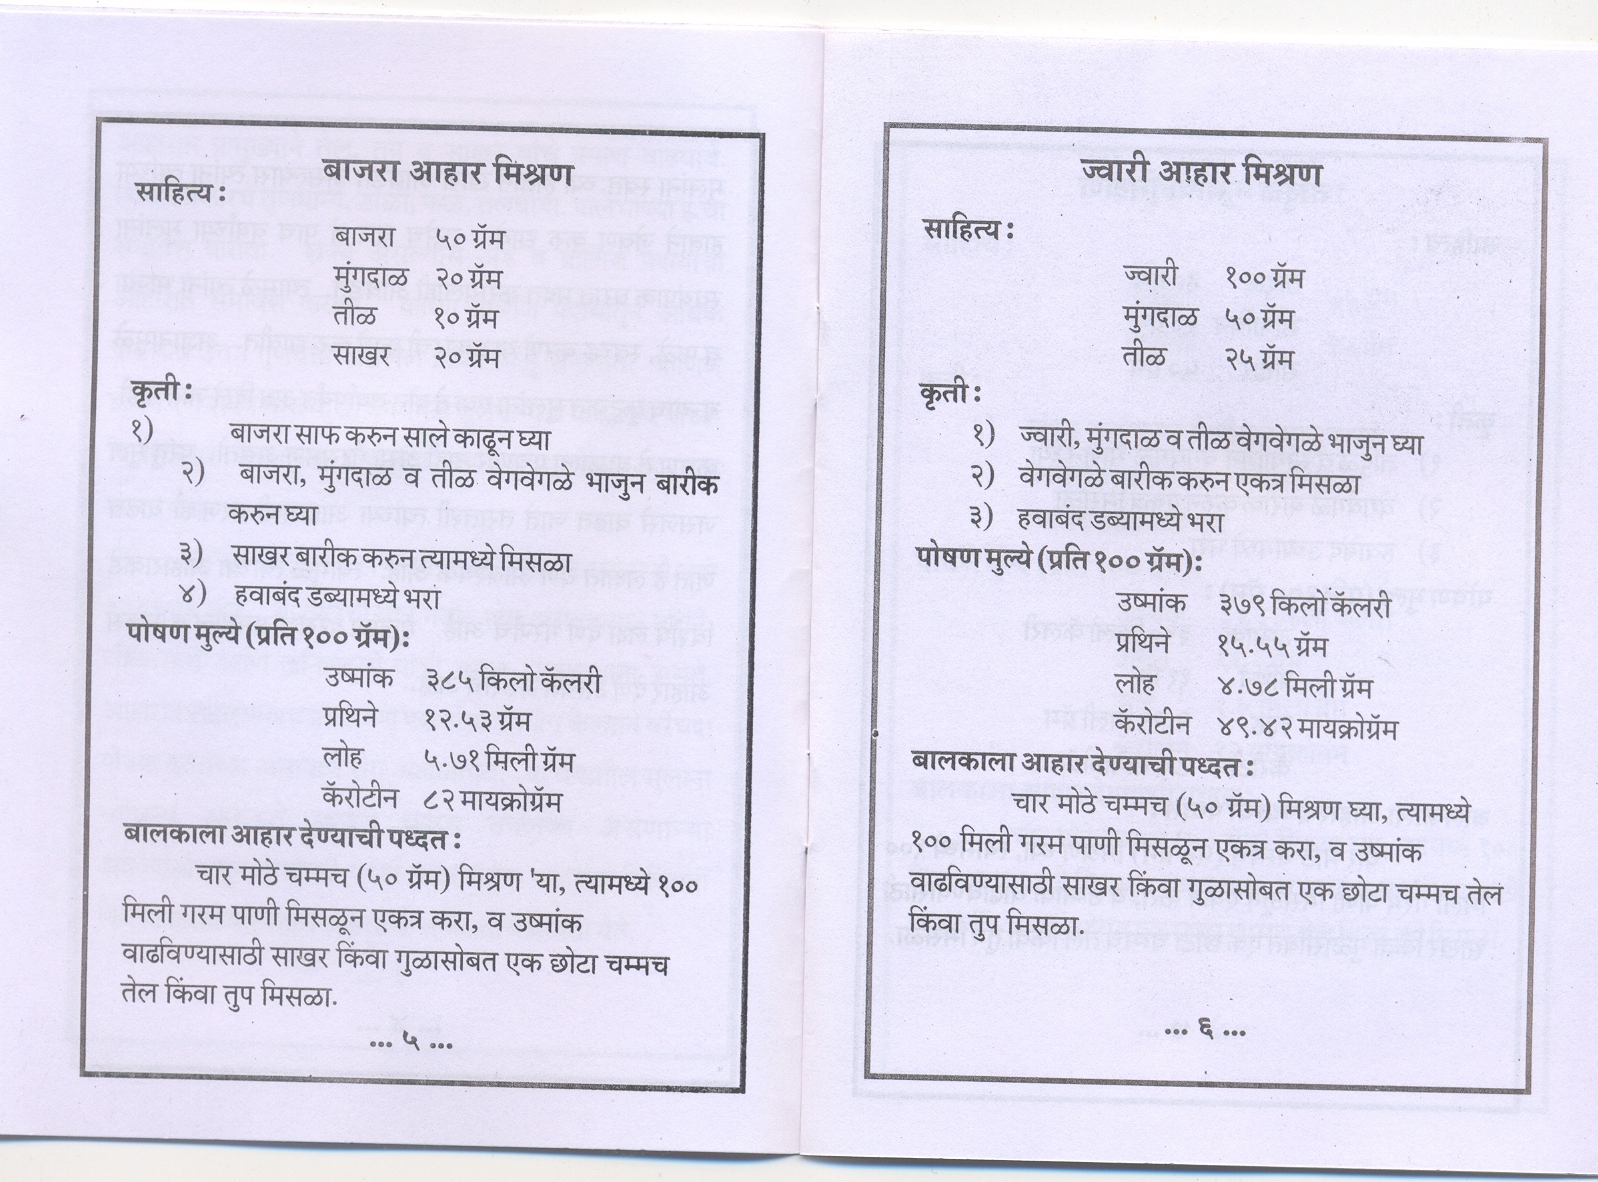 बाजरा आहार मिश्रण
साहित्य :
बाजरा ५० ग्रॅम
मुंगदाळ २० ग्रॅम
तीळ १० ग्रॅम
साखर २० ग्रॅम
कृती :
१) बाजरा साफ करुन साले काढून घ्या
२) बाजरा, मुंगदाळ व तीळ वेगवेगळे भाजुन बारीक
करुन घ्या
३) साखर बारीक करुन त्यामध्ये मिसळा
४) हवाबंद डब्यामध्ये भरा
पोषण मुल्ये (प्रति १०० ग्रॅम):
उष्मांक ३८५ किलो कॅलरी
प्रथिने १२.५३ ग्रॅम
लोह ५.७१ मिली ग्रॅम
कॅरोटीन ८२ मायक्रोग्रॅम
बालकाला आहार देण्याची पध्दत :
चार मोठे चम्मच (५० ग्रॅम) मिश्रण 'या, त्यामध्ये १००
मिली गरम पाणी मिसळून एकत्र करा, व उष्मांक
वाढविण्यासाठी साखर किंवा गुळासोबत एक छोटा चम्मच
तेल किंवा तुप मिसळा.
... ५ ...
ज्वारी आहार मिश्रण
साहित्य :
ज्वारी १०० ग्रॅम
मुंगदाळ ५० ग्रॅम
तीळ २५ ग्रॅम
कृती :
१) ज्वारी, मुंगदाळ व तीळ वेगवेगळे भाजुन घ्या
२) वेगवेगळे बारीक करुन एकत्र मिसळा
३) हवाबंद डब्यामध्ये भरा
पोषण मुल्ये (प्रति १०० ग्रॅम):
उष्मांक ३७९ किलो कॅलरी
प्रथिने १५.५५ ग्रॅम
लोह ४.७८ मिली ग्रॅम
कॅरोटीन ४९.४२ मायक्रोग्रॅम
बालकाला आहार देण्याची पध्दत :
चार मोठे चम्मच (५० ग्रॅम) मिश्रण घ्या, त्यामध्ये
१०० मिली गरम पाणी मिसळून एकत्र करा, व उष्मांक
वाढविण्यासाठी साखर किंवा गुळासोबत एक छोटा चम्मच तेल
किंवा तुप मिसळा.
... ६ ...